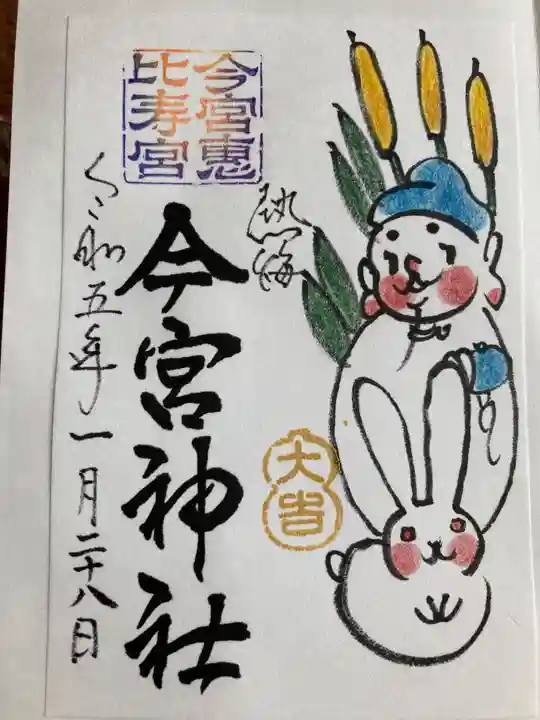 今宮恵
比寿宮
熱海
今宮神社
大吉
令和五年一月二十八日